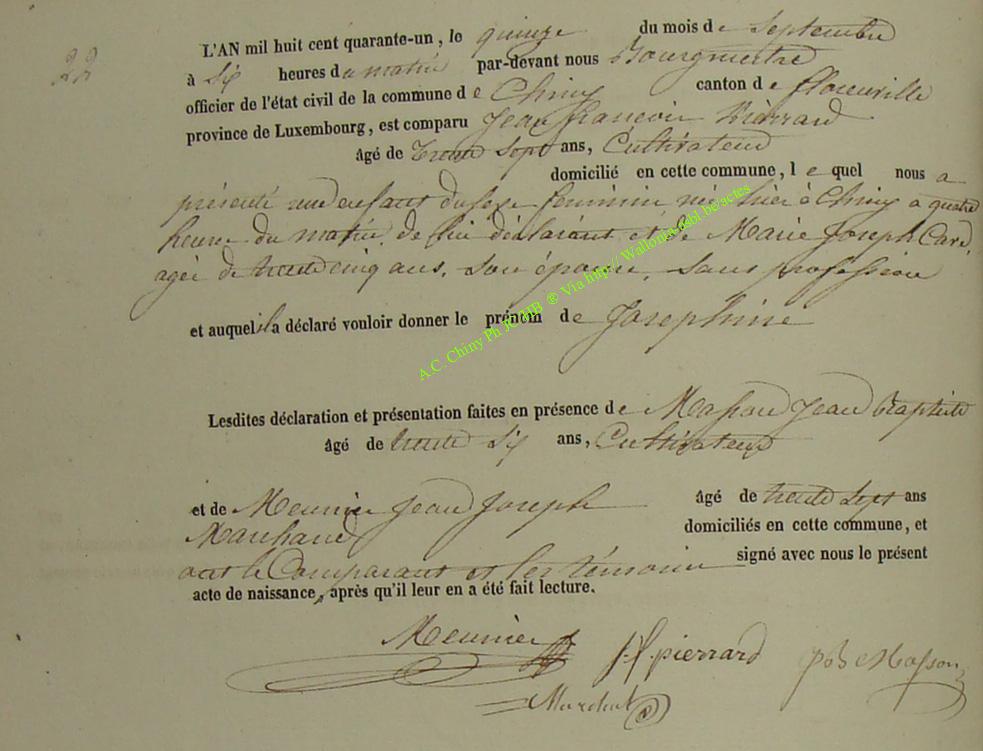 22
L'AN mil huit cent quarante-un, le quinze du mois de Septembre
à Six heures du matin par-devant nous Bourgmestre
officier de l'état civil de la commune de Chiny canton de florenville
province de Luxembourg, est comparu Jean françois Pierrard
âgé de Trente Sept ans, Cultivateur
domicilié en cette commune, lequel nous a
présenté une enfant du sexe féminin née hier à Chiny à quatre
heure du matin, de lui déclarant et de Marie Joseph
agée de trente cinq ans, son épouse, sans profession
et auquel il a déclaré vouloir donner le prénom de Josephine
Lesdites déclaration et présentation faites en présence de Masson Jean Baptiste
âgé de trente Six ans, Cultivateur
et de Meunier Jean Joseph âgé de trente Sept ans
Marchand domiciliés en cette commune, et
ont le Comparant et les témoins signé avec nous le présent
acte de naissance, après qu'il leur en a été fait lecture.
Meunier J f pierrard JB Masson
A.C. Chiny Ph JCMB ® Via http// Wallonia-asbl.be/actes